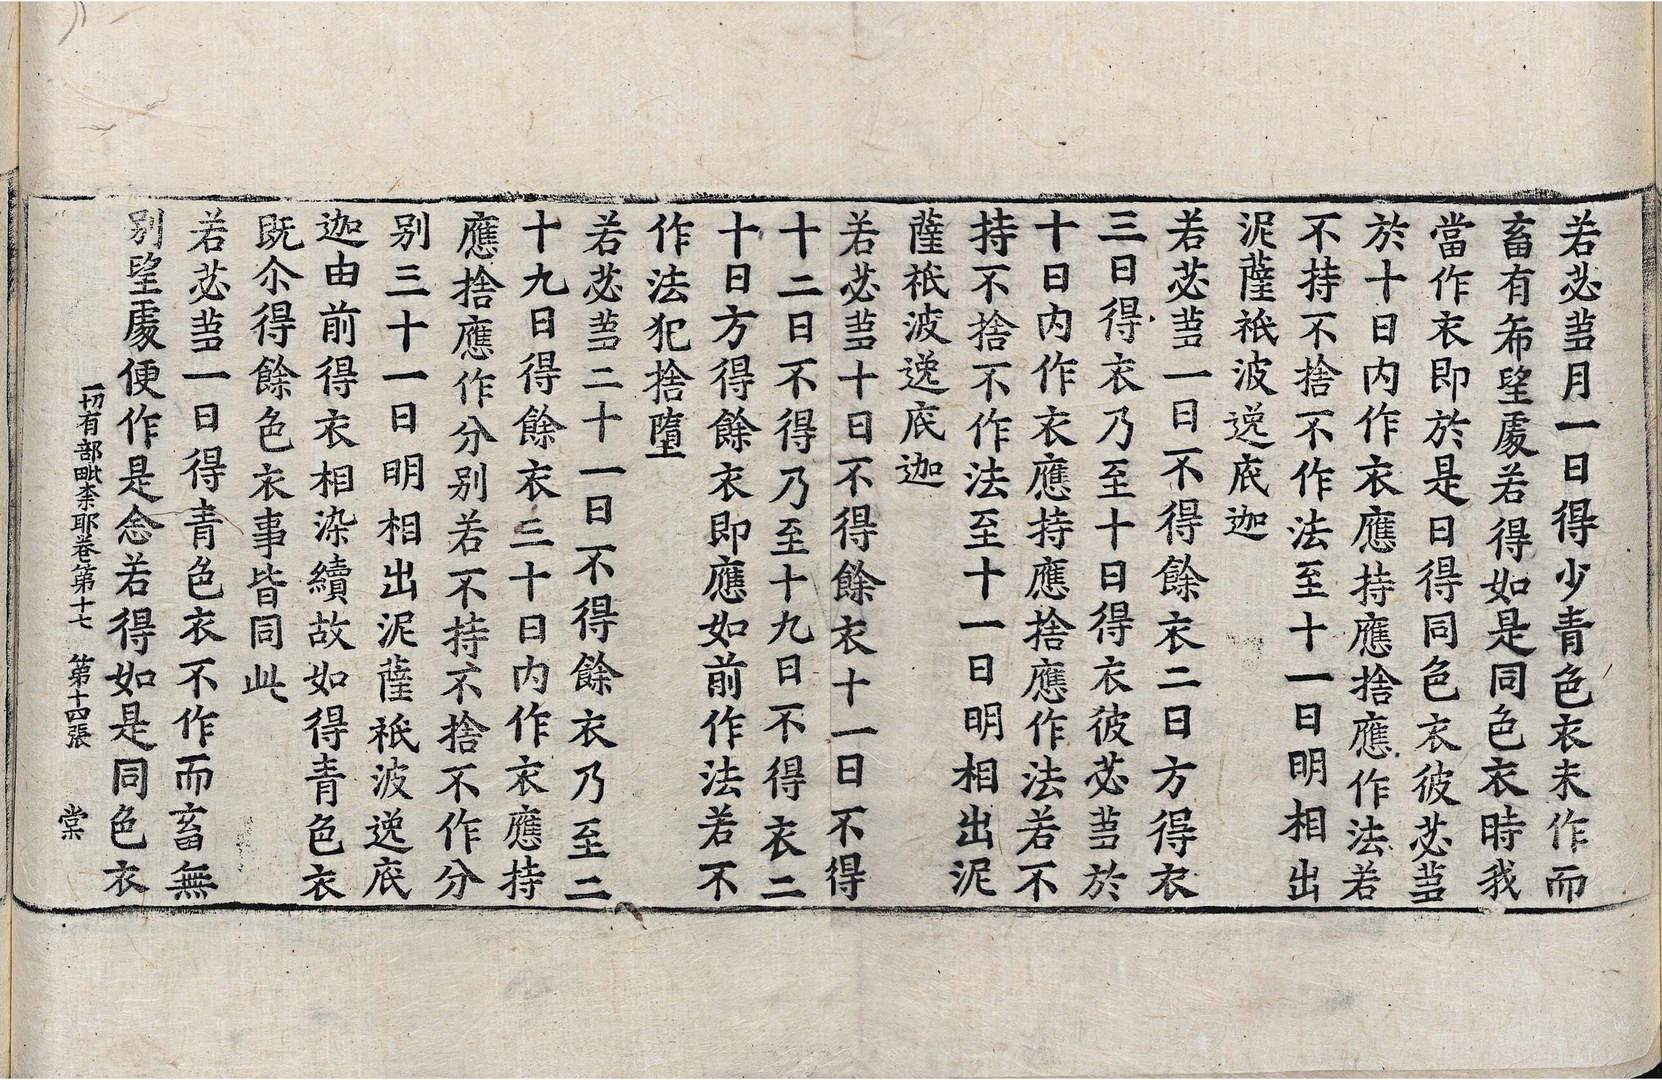 若苾蒭月一日得少青色衣未作而
畜有希望處若得如是同色衣時我
當作衣即於是日得同色衣彼苾蒭
於十日内作衣應持應捨應作法若
不持不捨不作法至十一日明相出
泥薩祇波逸底迦
若苾蒭一日不得餘衣二日方得衣
三日得衣乃至十日得衣彼苾蒭於
十日内作衣應持應捨應作法若不
持不捨不作法至十一日明相出泥
薩祇波逸底迦
若苾蒭十日不得餘衣十一日不得
十二日不得乃至十九日不得衣二
十日方得餘衣即應如前作法若不
作法犯捨墮
若苾蒭二十一日不得餘衣乃至二
十九日得餘衣三十日内作衣應持
應捨應作分别若不持不捨不作分
别三十一日明相出泥薩祇波逸底
迦由前得衣相染續故如得青色衣
既尒得餘色衣事皆同此
若苾蒭一日得青色衣不作而畜無
别望處便作是念若得如是同色衣
一切有部毗柰耶卷第十七 第十四張 棠